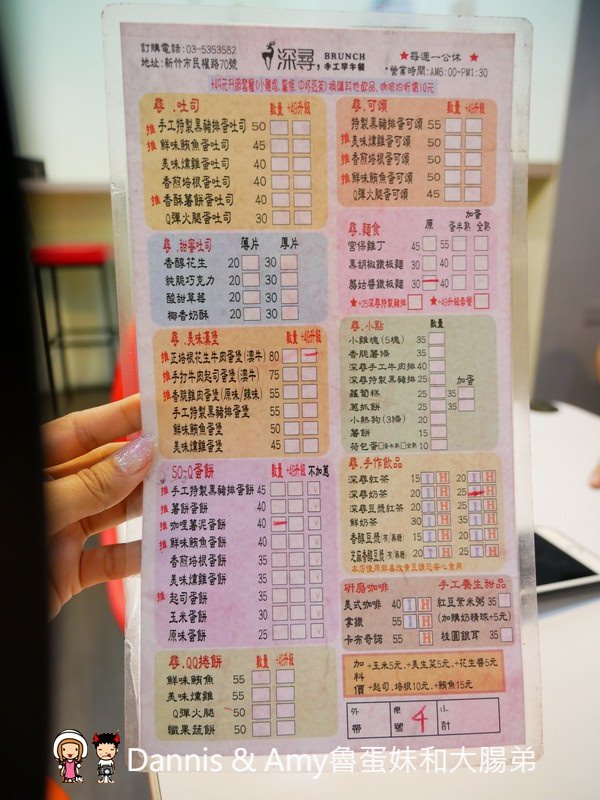 訂購電話:03-5353582
地址:新竹市民權路70號
深尋, BRUNCH 手工早午餐
★每週一公休★
*營業時間:AM6:00-PM1:30
尋.吐司 數量 +49升級
推 手工特製黑豬排蛋吐司 50
推 鮮味鮪魚蛋吐司 45
美味燻雞蛋吐司 40
香煎培根蛋吐司 40
推 香酥薯餅蛋吐司 40
Q彈火腿蛋吐司 30
尋.甜蜜吐司 薄片 厚片
香醇花生 20 30
純脆巧克力 20 30
酸甜草莓 20 30
椰香奶酥 20 30
尋.美味漢堡 數量 +49升級
推 正培根花生牛肉蛋堡(澳牛) 80
推 手打牛肉起司蛋堡(澳牛) 75
推 香脆雞肉蛋堡(原味/辣味) 55
手工特製黑豬排蛋堡 55
鮮味鮪魚蛋堡 50
美味燻雞蛋堡 45
SO-Q蛋餅 數量 +49升級 不加蔥
推 手工特製黑豬排蛋餅 45
推 薯餅蛋餅 40
推 咖哩薯泥蛋餅 40
推 鮮味鮪魚蛋餅 40
香煎培根蛋餅 35
美味燻雞蛋餅 35
推 起司蛋餅 35
玉米蛋餅 30
原味蛋餅 25
尋.QQ捲餅 數量 +49升級
鮮味鮪魚 55
美味燻雞 55
Q彈火腿 50
纖果蔬餅 50
尋.可頌 數量 +49升級
特製黑豬排蛋可頌 55
推 美味燻雞蛋可頌 50
推 香煎培根蛋可頌 50
推 鮮味鮪魚蛋可頌 50
Q彈火腿蛋可頌 45
尋.麵食 原 加蛋 蛋半熟 全熟
宮保雞丁 45
黑胡椒鐵板麵 30 40
蘑菇醬鐵板麵 30 40
★+25深尋特製豬排 ★+49升級套餐
尋.小點 數量
小雞塊(5塊) 35
香脆薯條 35
深尋手工牛肉排 40
深尋特製黑豬排 25 加蛋
蘿蔔糕 25 35
蔥抓餅 25 35
小熱狗(3條) 20
薯餅 15
荷包蛋 半熟 全熟 10
尋.手作飲品
深尋紅茶 15 I H 20 I H
深尋奶茶 20 I H 25 I H
深尋豆漿紅茶 20 I H 25 I H
鮮奶茶 30 I H 35 I H
香醇豆漿(有/無糖) 15 I H 20 I H
芝麻香醇豆漿(有/無糖) 20 I H 25 I H
本店使用非基改黃豆請您安心食用
研磨咖啡
美式咖啡 40 I H
拿鐵 55 I H
卡布奇諾 55 H
手工養生甜品
紅豆紫米粥 35
(加購奶精球+5元)
桂圓銀耳 35
加料價
+玉米5元、+美生菜5元、+花生醬5元
+起司、培根10元、+鮪魚15元
外帶 桌號 4 小計
Dannis & Amy魯蛋妹和大腸弟